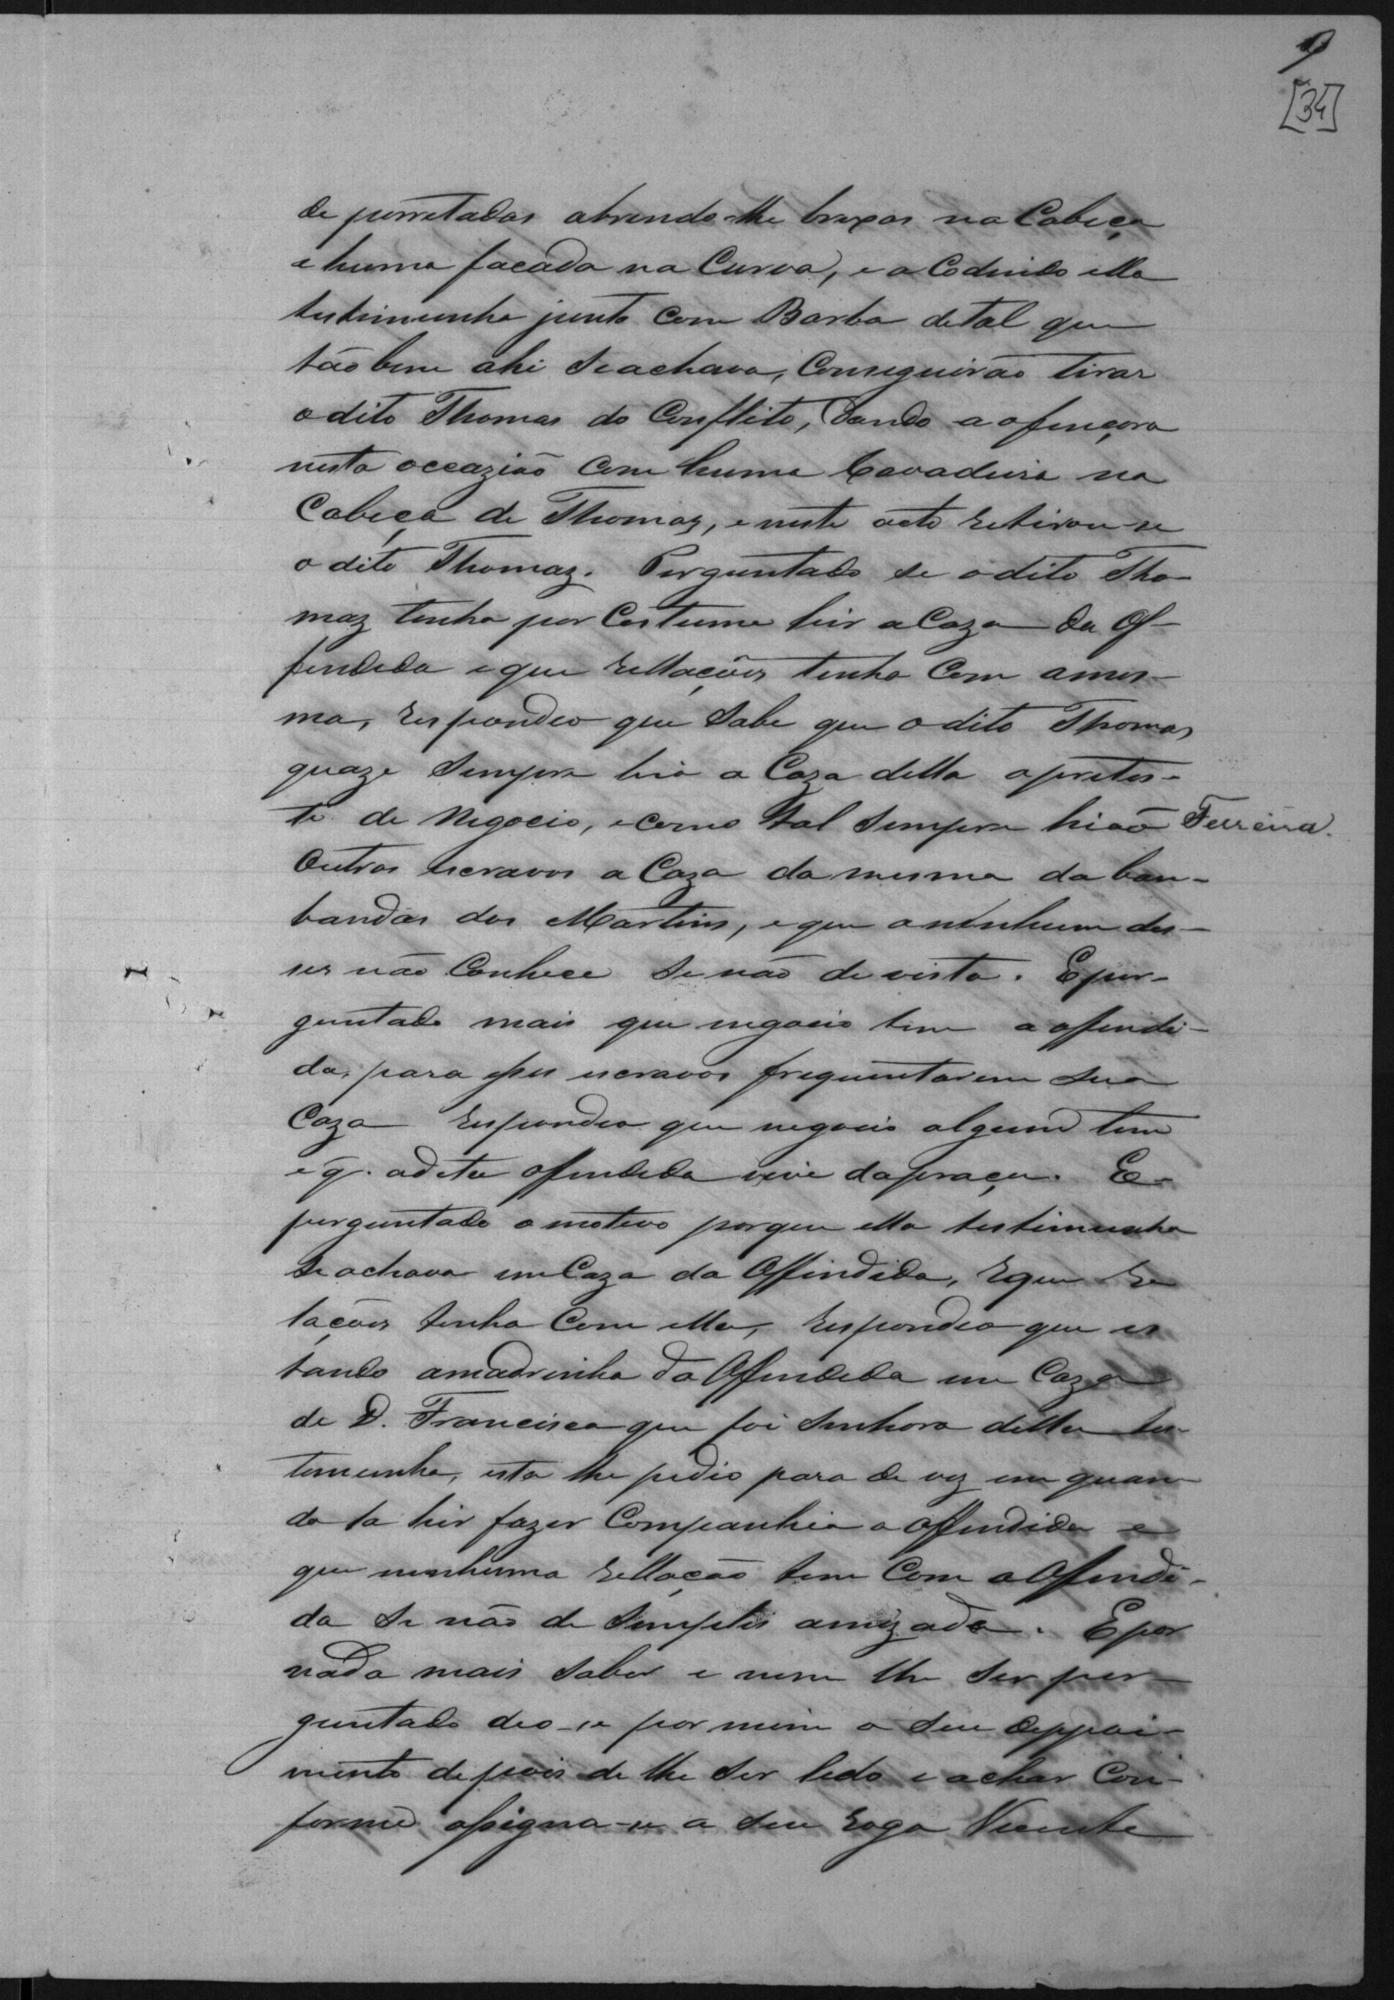 9
[34]
de porretadas abrindo-lhe brexas na Cabeça
e huma facada na Curva, e a Codindo ella
testimunha junto com Barba detal que
tão bem ahi Seachava, Conseguirão tirar
odito Thomas do Conflito, dando a ofençora
nesta occazião Com huma Cavadeira na
Cabeça de Thomaz, e neste acto retirou-se
o dito Thomaz. Perguntado se odito Tho-
maz tenha por Costume hir a Caza da Of-
fendida e que rellações tenha Com ames-
ma, respondeo que Sabe que o dito Thomas
quaze Sempre hia a Caza della a pretes-
to de Negocio, e como tal Sempre hião Ferreira.
Outros escravos a Caza da mesma da ban-
bandas dos Martins, e que a nenhum des-
ses não Conhece Senão de vista. Eper-
guntado mais que negocio tem a offendi-
da, para esses escravos frequentarem Sua
Caza respondeo que negocio algum tem
e q. adita offendida vive da praça. E-
perguntado o motivo porque ella testimunha
Se achava em Caza da Offindida, e que re
lações tenha Com ella, respondeo que es
tando amadrinha da Offendida em Caza
de D. Francisca que foi Senhora della tes-
temunha, esta lhe pedio para de vez em quan-
do la hir fazer Companhia a offindida e
que nenhuma rellação tem Com a Offendi-
da Se não de Simples amizade. Epor
nada mais Saber e nem lhe Ser per-
guntado deo-se por mim o Seu deppoi-
mento depois de lhe Ser lido e achar Con-
forme assigna-se a Seu rogo Vicente